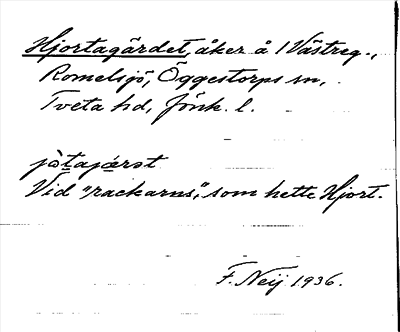 Hjortagärdet, åker å 1 Västreg.,
Romelsjö, Öggestorps sn,
Tveta hd, Jönk. l.
jòtajærət
Vid "rackarns", som hette Hjort.
F. Neij 1936.